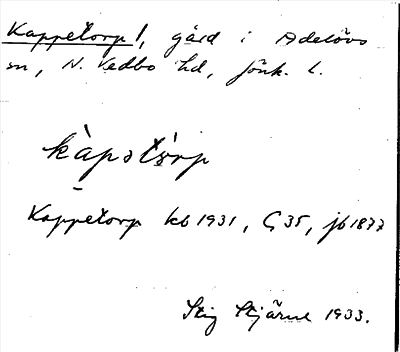 Kappetorp 1, gård i Adelövs
sn, N. Vedbo hd, Jönk. l.
kàpətórp
Kappetorp kb 1931, G 35, jb 1877
Stig Stjärne 1933.